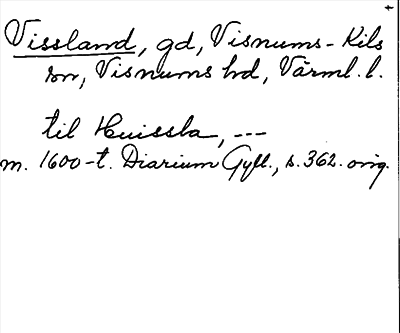 Vissland, gd, Visnums-Kils
sn, Visnums hd, Värml. l.
til Huissla, ---
m. 1600-t. Diarium Gyll., s. 362. orig.